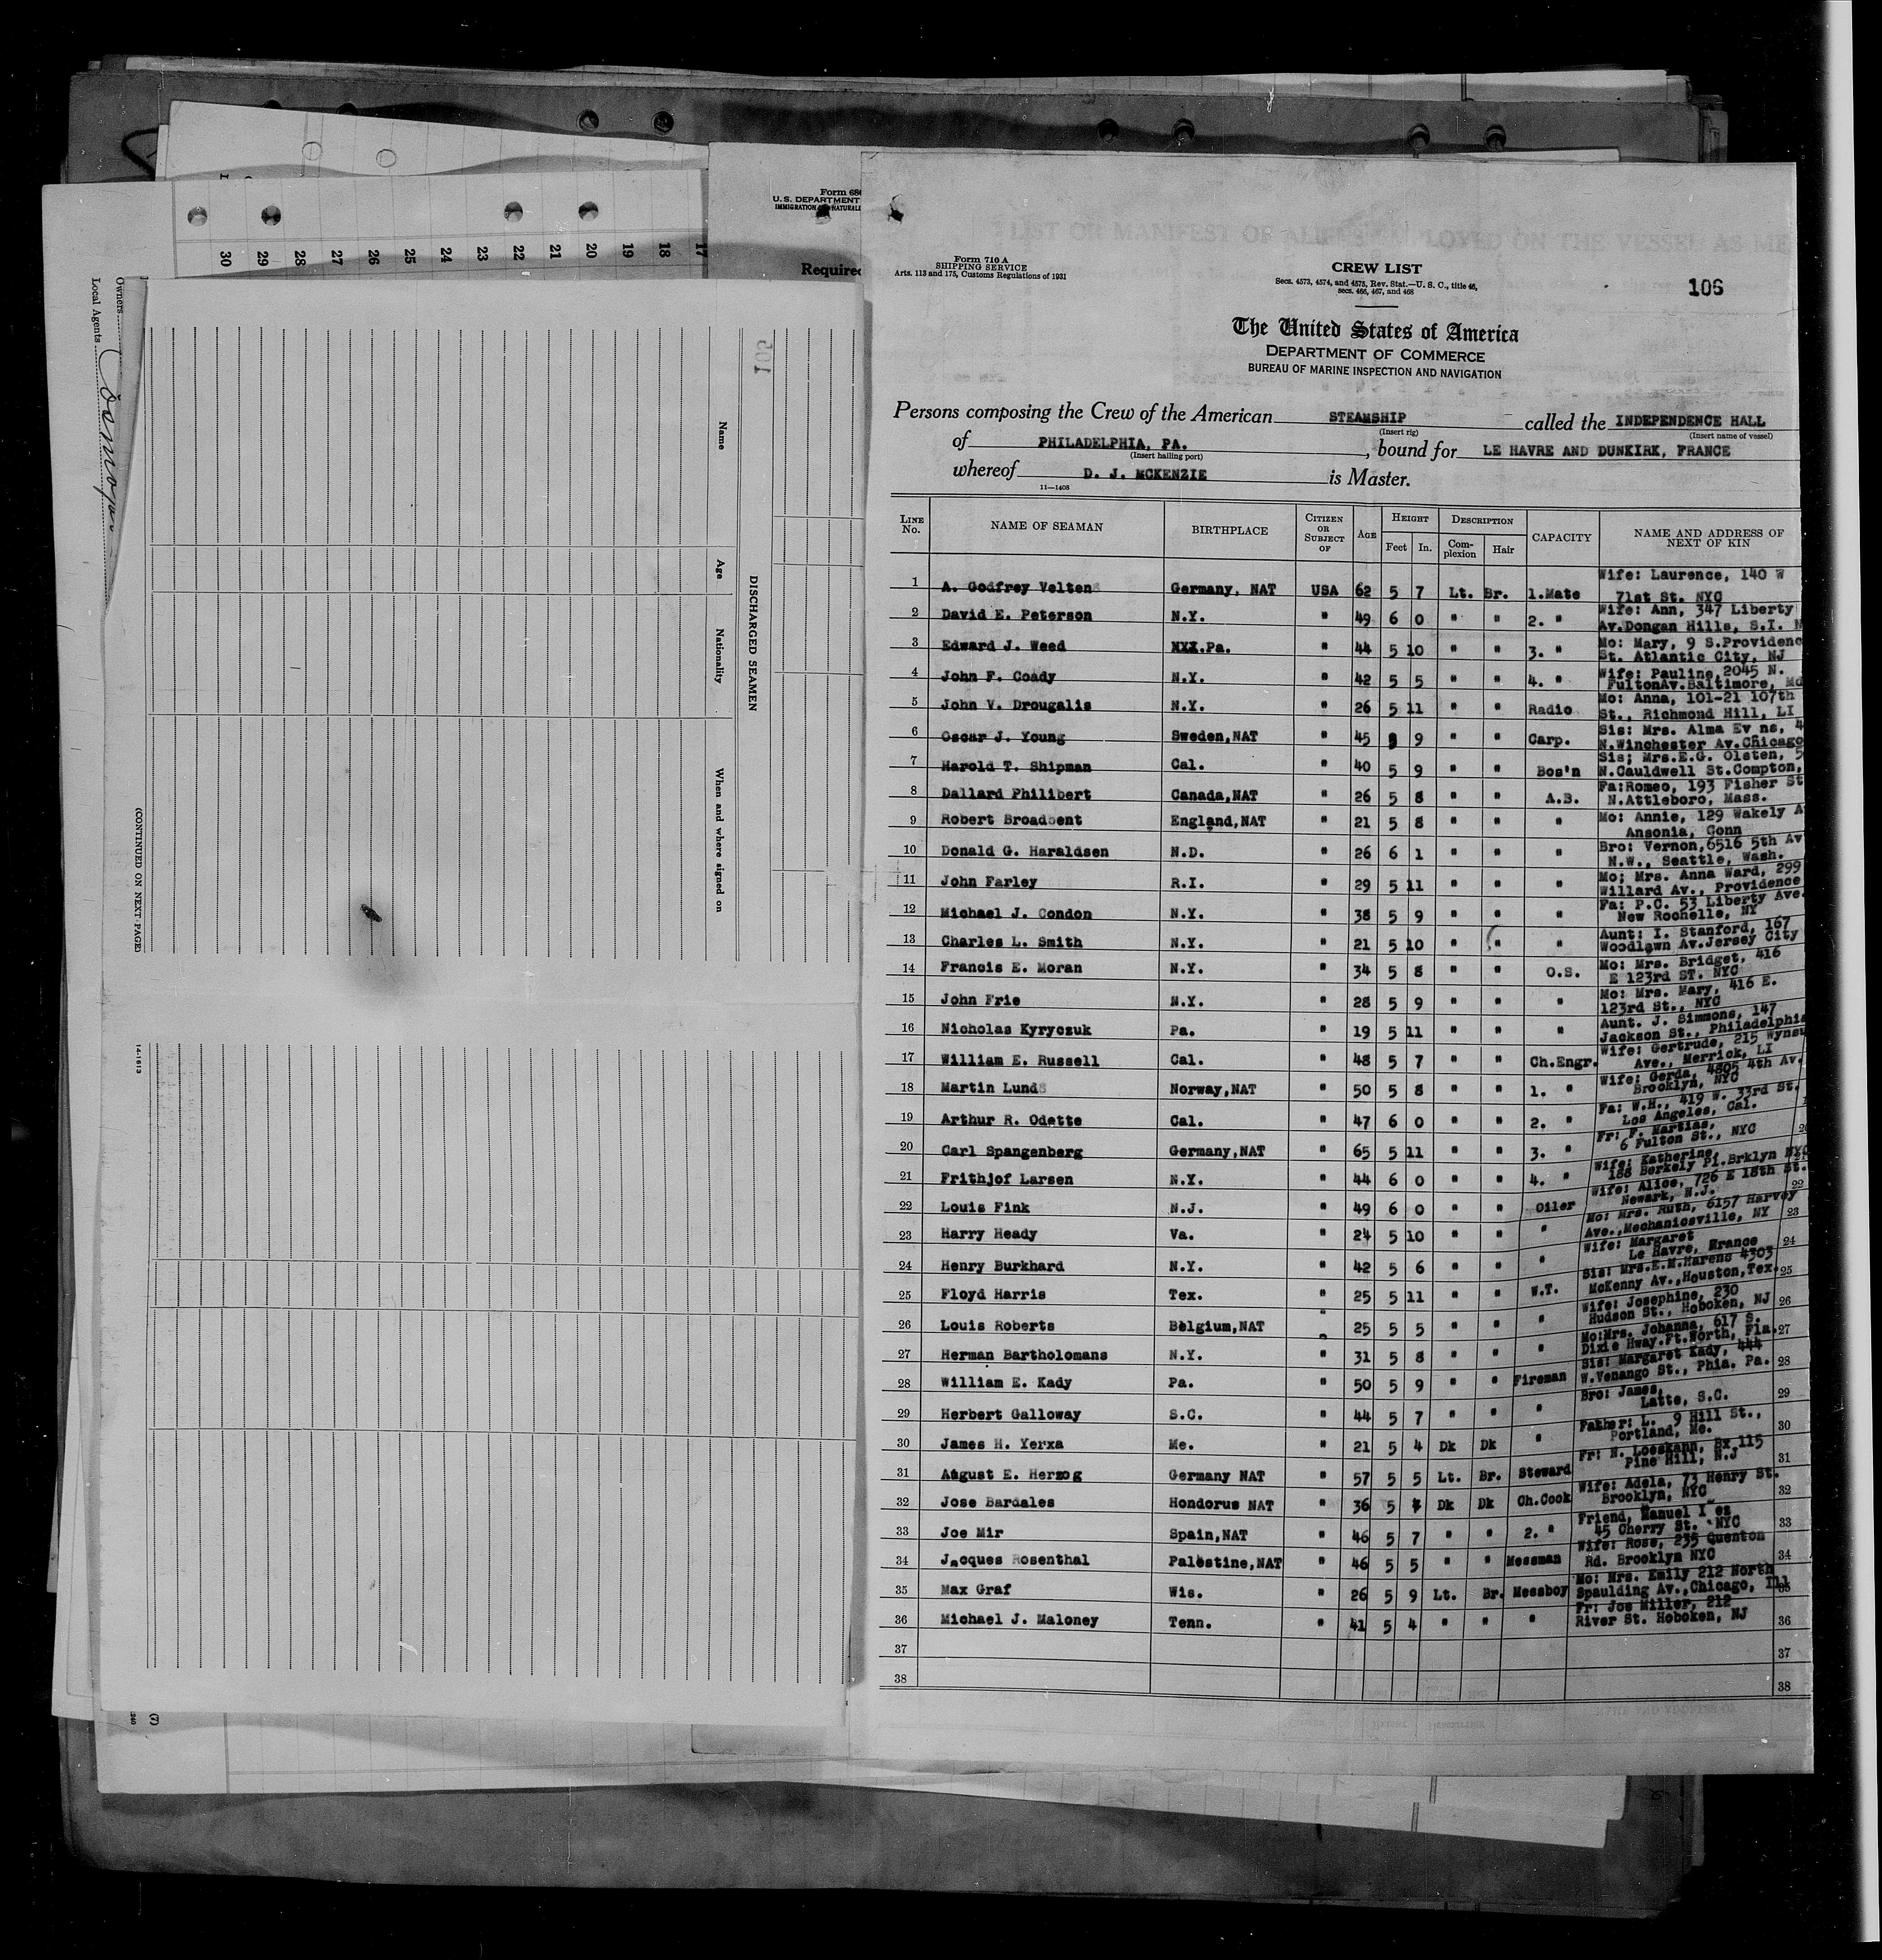 Form 686
U.S. DEPARTMENT
IMMIGRATION AND NATURALI
Required
30 29 28 27 26 25 24 23 22 21 20 19 18 17
Owners
Local Agents
105
DISCHARGED SEAMEN
Name Age Nationality When and where signed on
(CONTINUED ON NEXT PAGE)
14-1613
(7)
Form 710 A
SHIPPING SERVICE
Arts. 113 and 175, Customs Regulations of 1931
CREW LIST
Secs. 4573, 4574, and 4575, Rev. Stat.—U. S. C., title 46,
secs. 466, 467, and 468
106
The United States of America
DEPARTMENT OF COMMERCE
BUREAU OF MARINE INSPECTION AND NAVIGATION
Persons composing the Crew of the American STEAMSHIP called the INDEPENDENCE HALL
(Insert rig) (Insert name of vessel)
of PHILADELPHIA, PA. , bound for LE HAVRE AND DUNKIRK, FRANCE
(Insert hailing port)
whereof D. J. MCKENZIE is Master.
11—1408
LINE No. NAME OF SEAMAN BIRTHPLACE CITIZEN OR SUBJECT OF AGE HEIGHT Feet In. DESCRIPTION Complexion Hair CAPACITY NAME AND ADDRESS OF NEXT OF KIN
1 A. Godfrey Velten Germany, NAT USA 62 5 7 Lt. Br. 1.Mate Wife: Laurence, 140 W
71st St. NYC
2 David E. Peterson N.Y. " 49 6 0 " " 2. " Wife: Ann, 347 Liberty
Av.Dongan Hills, S.I. N
3 Edward J. Weed XXX.Pa. " 44 5 10 " " 3. " Mo: Mary, 9 S.Providenc
St. Atlantic City, NJ
4 John F. Coady N.Y. " 42 5 5 " " 4. " Wife: Pauline, 2045 N.
FultonAv.Baltimore, Md
5 John V. Drougalis N.Y. " 26 5 11 " " Radio Mo: Anna, 101-21 107th
St., Richmond Hill, LI
6 Oscar J. Young Sweden,NAT " 45 9 " " Carp. Sis: Mrs. Alma Ev ns, 4
N.Winchester Av.Chicago
7 Harold T. Shipman Cal. " 40 5 9 " " Bos'n Sis; Mrs.E.G. Olsten, 5
N.Cauldwell St.Compton,
8 Dallard Philibert Canada,NAT " 26 5 8 " " A.B. Fa:Romeo, 193 Fisher St
N.Attleboro, Mass.
9 Robert Broadbent England,NAT " 21 5 8 " " " Mo: Annie, 129 Wakely A
Ansonia, Conn
10 Donald G. Haraldsen N.D. " 26 6 1 " " " Bro: Vernon,6516 5th Av
N.W., Seattle, Wash.
11 John Farley R.I. " 29 5 11 " " " Mo; Mrs. Anna Ward, 299
Willard Av., Providence
12 Michael J. Condon N.Y. " 38 5 9 " " " Fa: P.C. 53 Liberty Ave.
New Rochelle, NY
13 Charles L. Smith N.Y. " 21 5 10 " " " Aunt: I. Stanford, 167
Woodlawn Av.Jersey City
14 Francis E. Moran N.Y. " 34 5 8 " " O.S. Mo: Mrs. Bridget, 416
E 123rd ST. NYC
15 John Frie N.Y. " 28 5 9 " " " Mo: Mrs. Mary, 416 E.
123rd St., NYC
16 Nicholas Kyryczuk Pa. " 19 5 11 " " " Aunt. J. Simmons, 147
Jackson St., Philadelphia
17 William E. Russell Cal. " 48 5 7 " " Ch.Engr. Wife: Gertrude, 215 Wynsu
Ave., Merrick, LI
18 Martin Lund Norway,NAT " 50 5 8 " " 1. " Wife: Gerda, 4805 4th Av.
Brooklyn, NYC
19 Arthur R. Odette Cal. " 47 6 0 " " 2. " Fa: W.H., 419 W. 33rd St.
Los Angeles, Cal.
20 Carl Spangenberg Germany,NAT " 65 5 11 " " 3. " Fr: F. Martias,
6 Fulton St., NYC
21 Frithjof Larsen N.Y. " 44 6 0 " " 4. " Wife: Katherine,
188 Berkely Pl.Brklyn NYC
22 Louis Fink N.J. " 49 6 0 " " Oiler Wife: Alice, 726 E 18th St. 22
Newark, N.J.
23 Harry Heady Va. " 24 5 10 " " " Mo: Mrs. Ruth, 6157 Harvey 23
Ave.,Mechanicsville, NY
24 Henry Burkhard N.Y. " 42 5 6 " " " Wife: Margaret 24
Le Havre, France
25 Floyd Harris Tex. " 25 5 11 " " W.T. Sis: Mrs.E.M.Harens 4303 25
McKenny Av.,Houston,Tex.
26 Louis Roberts Belgium,NAT " 25 5 5 " " " Wife: Josephine, 230 26
Hudson St., Hoboken, NJ
27 Herman Bartholomans N.Y. " 31 5 8 " " " Mo:Mrs. Johanna, 617 S. 27
Dixie Hway.Ft.Worth, Fla.
28 William E. Kady Pa. " 50 5 9 " " Fireman Sis: Margaret Kady, 444 28
W.Venango St., Phia. Pa.
29 Herbert Galloway S.C. " 44 5 7 " " " Bro: James, 29
Latte, S.C.
30 James H. Yerxa Me. " 21 5 4 Dk Dk " Father: L. 9 Hill St., 30
Portland, Me.
31 August E. Herzog Germany NAT " 57 5 5 Lt. Br. Steward Fr: N. Loeskann, Bx 115 31
Pine Hill, N.J
32 Jose Bardales Hondorus NAT " 36 5 Dk Dk Ch.Cook Wife: Adela, 73 Henry St. 32
Brooklyn, NYC
33 Joe Mir Spain,NAT " 46 5 7 " " 2. " Friend, Manuel I es 33
45 Cherry St. NYC
34 Jacques Rosenthal Palestine,NAT " 46 5 5 " " Messman Wife: Rose, 235 Quenton 34
Rd. Brooklyn NYC
35 Max Graf Wis. " 26 5 9 Lt. Br. Messboy Mo: Mrs. Emily 212 North 35
Spaulding Av.,Chicago, Ill
36 Michael J. Maloney Tenn. " 41 5 4 " " " Fr: Joe Miller, 212 36
River St. Hoboken, NJ
37 37
38 38